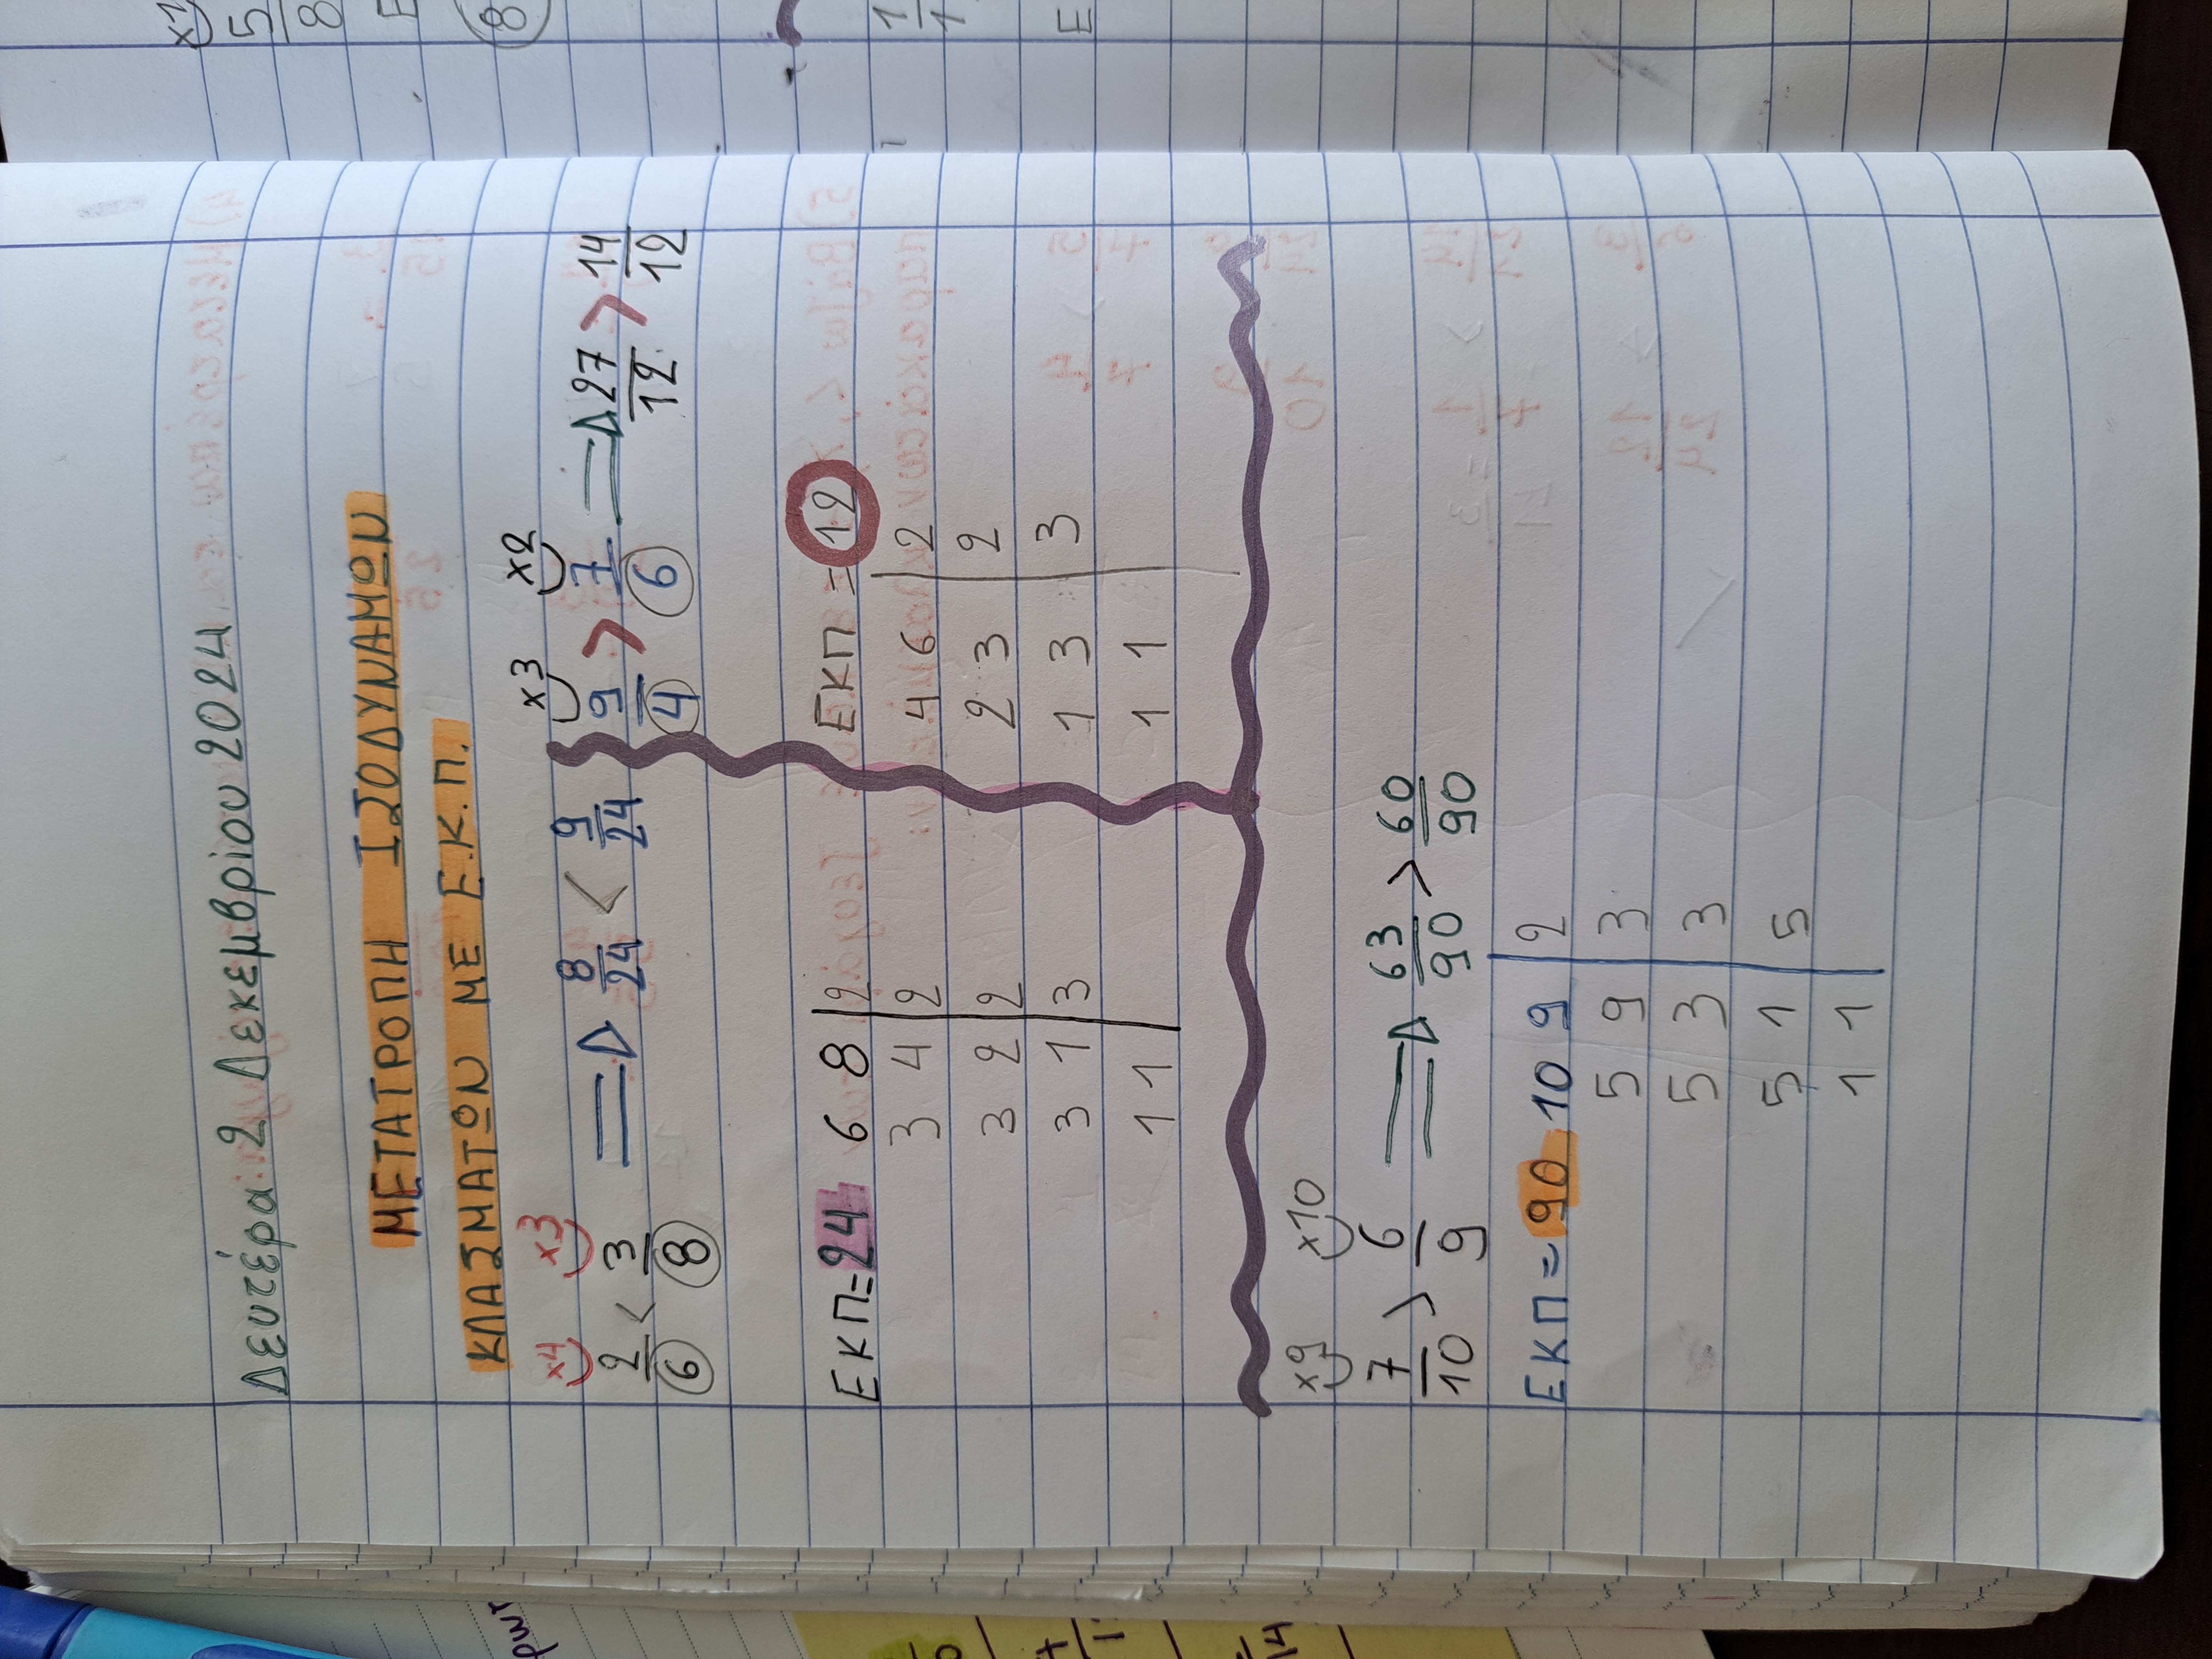 Δευτέρα 2 Δεκεμβρίου 2024
ΜΕΤΑΤΡΟΠΗ ΙΣΟΔΥΝΑΜΩΝ
ΚΛΑΣΜΑΤΩΝ ΜΕ Ε.Κ.Π.
x4 x3
2/6 < 3/8 ⇒ 8/24 < 9/24
ΕΚΠ=24 6 8 | 2
3 4 | 2
3 2 | 2
3 1 | 3
1 1 |
x3 x2
9/4 > 7/6 ⇒ 27/12 > 14/12
ΕΚΠ = 12
4 6 | 2
2 3 | 2
1 3 | 3
1 1 |
x9 x10
7/10 > 6/9 ⇒ 63/90 > 60/90
ΕΚΠ = 90 10 9 | 2
5 9 | 3
5 3 | 3
5 1 | 5
1 1 |